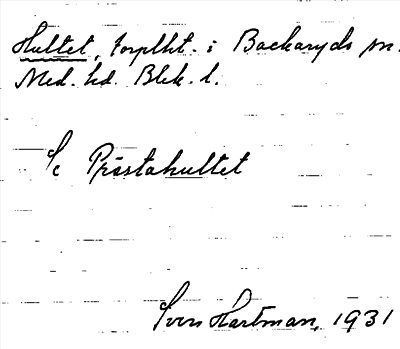 Hultet, torplht. i Backaryds sn.
Med. hd. Blek. l.
Se Prästahultet
Sven Hartman, 1931